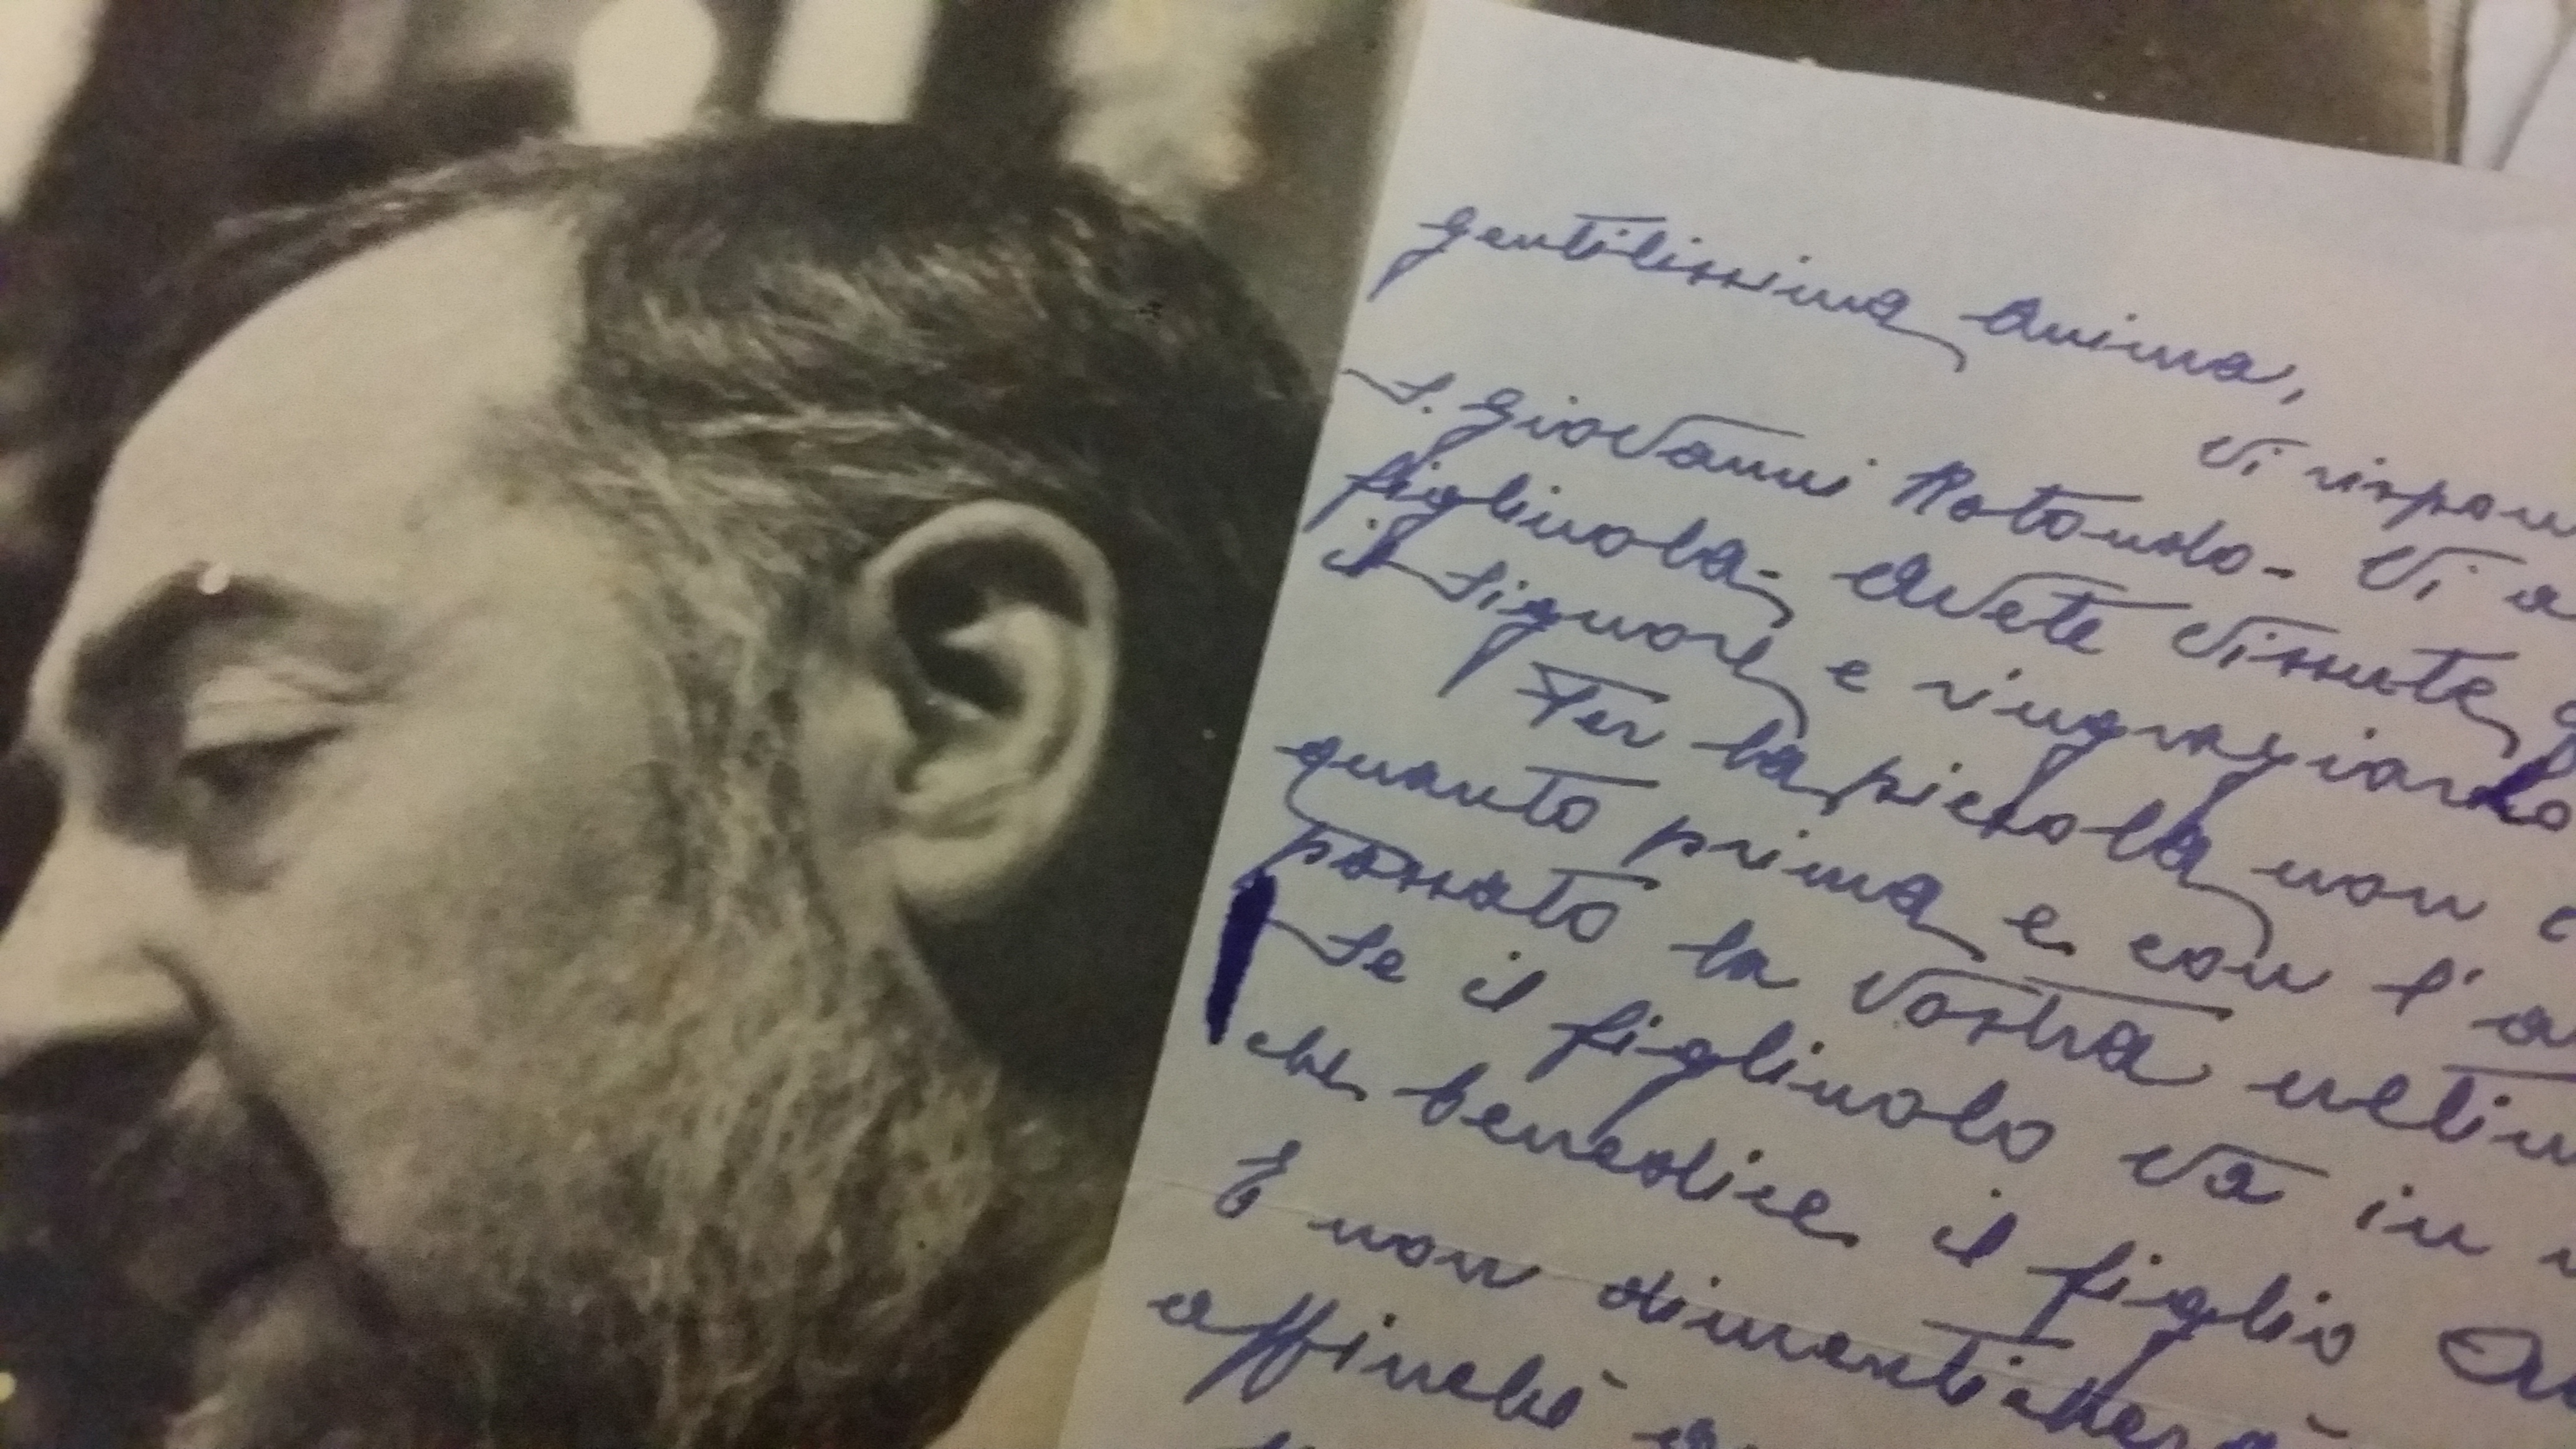 gentilissima anima,
Vi rispon
S. Giovanni Rotondo - Vi a
figliuola - avete vissute
il Signore e ringraziando
Per la piccola non
quanto prima e con l'a
passato la vostra ultim
Se il figliuolo va in
che benedice il figlio
E non dimenticherà
affinché